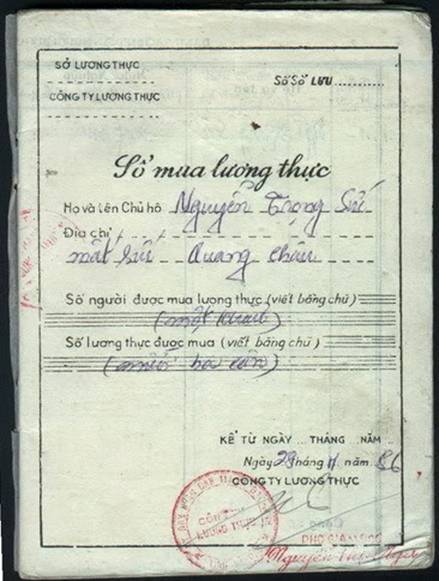 SỞ LƯƠNG THỰC
Số Sổ LƯU
CÔNG TY LƯƠNG THỰC
Sổ mua lương thực
Họ và tên Chủ hộ Nguyễn Trọng Sứ
Địa chỉ
mắt sứ Quang châu
Số người được mua lương thực (viết bằng chữ)
(một
Số lương thực được mua (viết bằng chữ)
(mười ba cân)
KỂ TỪ NGÀY ... THÁNG ... NĂM ...
Ngày 29 tháng 11 năm 86
CÔNG TY LƯƠNG THỰC
PHÓ GIÁM ĐỐC
Nguyễn